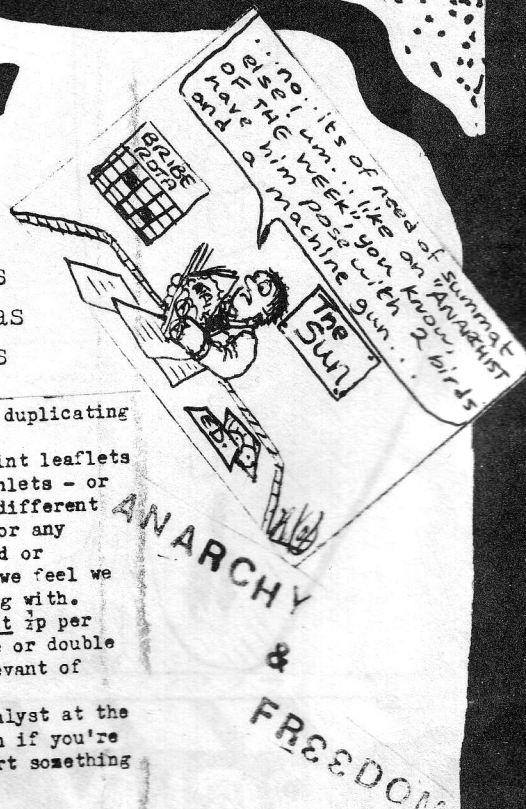 ...no..its of need of summat
else! um... like on "ANARCHIST
OF THE WEEK", you know,
have him pose with 2 birds
and a machine gun...
BRIBE
ROTA
The
Sun
ED.
s
as
s
duplicating
int leaflets
hlets - or
different
or any
d or
we feel we
g with.
t ½p per
e or double
evant of
alyst at the
n if you're
rt something
ANARCHY
&
FRƐƐDOM